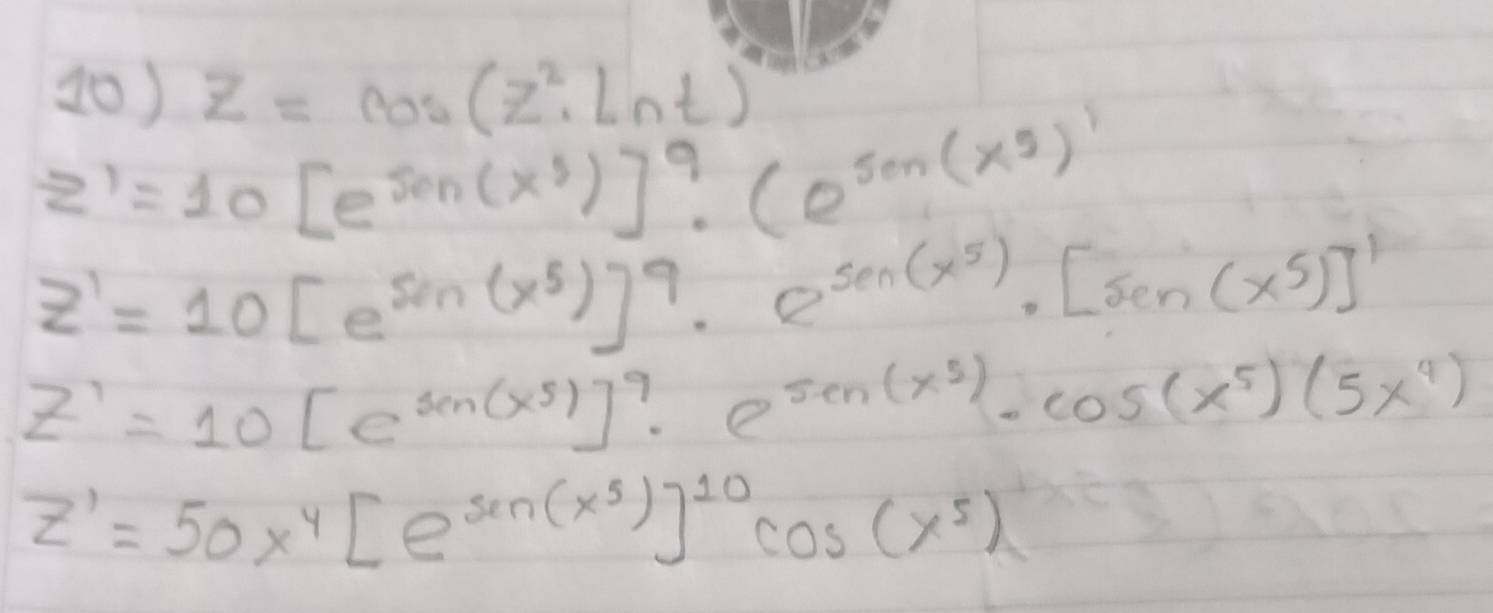 10) Z = cos(Z². Lnt)
Z' = 10 [e^sen(x⁵)]⁹. (e^sen(x⁵)'
Z' = 10 [e^sen(x⁵)]⁹. e^sen(x⁵). [sen(x⁵)]'
Z' = 10 [e^sen(x⁵)]⁹. e^sen(x⁵). cos(x⁵)(5x⁴)
Z' = 50x⁴ [e^sen(x⁵)]¹⁰ cos(x⁵)